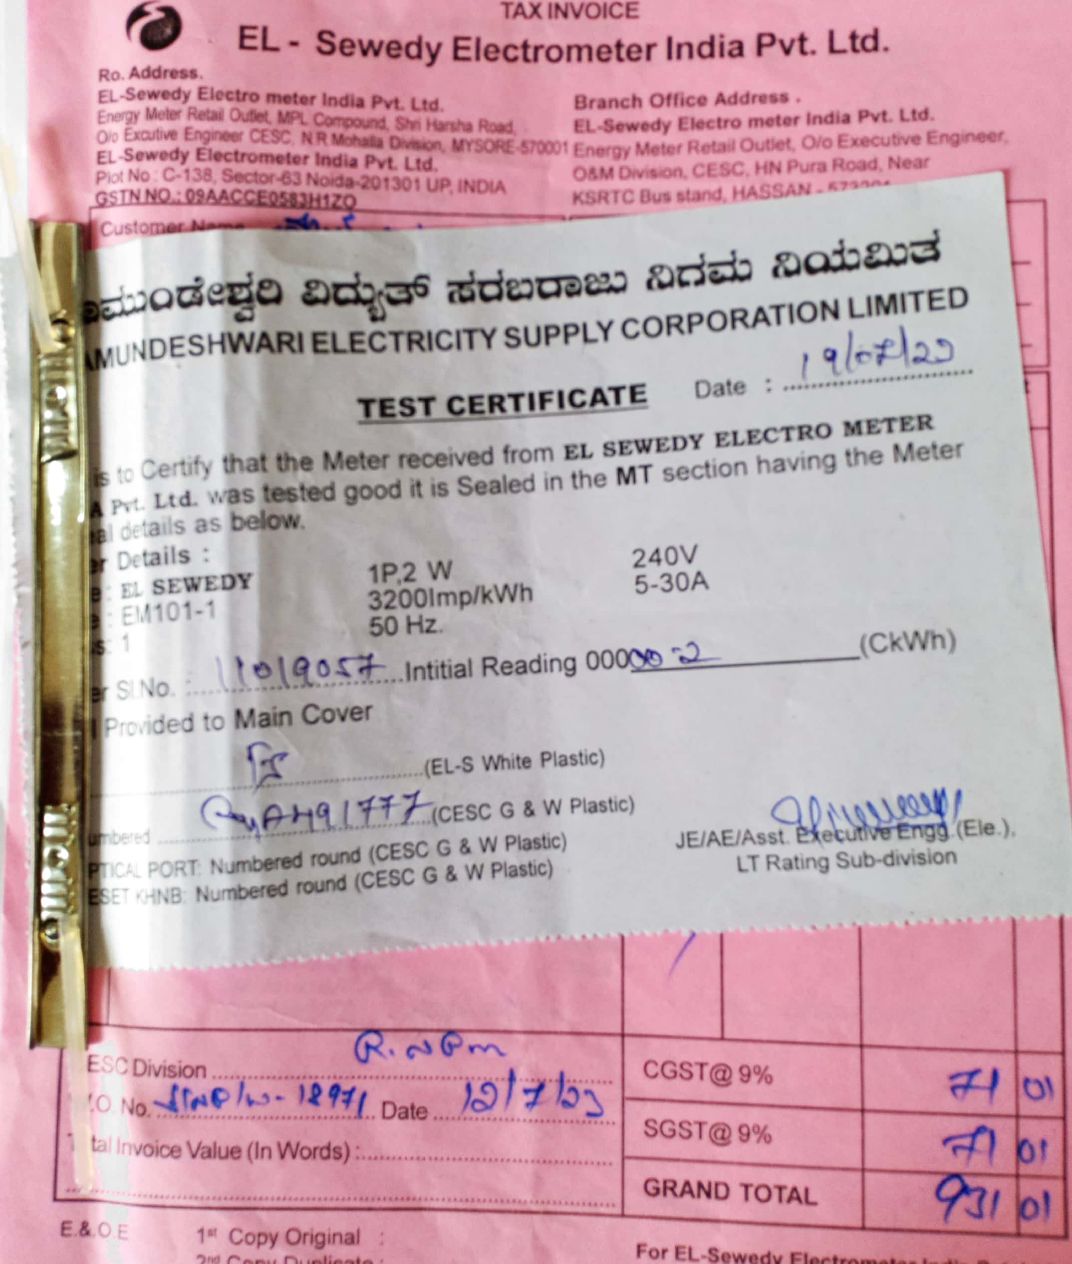 TAX INVOICE
EL - Sewedy Electrometer India Pvt. Ltd.
Ro. Address.
EL-Sewedy Electro meter India Pvt. Ltd.
Energy Meter Retail Outlet, MPL Compound, Shri Harsha Road,
O/o Excutive Engineer CESC, N.R.Mohalla Division, MYSORE-570001
EL-Sewedy Electrometer India Pvt. Ltd.
Plot No : C-138, Sector-63 Noida-201301 UP, INDIA
GSTN NO.: 09AACCE0583H1ZQ
Branch Office Address .
EL-Sewedy Electro meter India Pvt. Ltd.
Energy Meter Retail Outlet, O/o Executive Engineer,
O&M Division, CESC, HN Pura Road, Near
KSRTC Bus stand, HASSAN -
Customer Name
ಮುಂಡೇಶ್ವರಿ ವಿದ್ಯುತ್ ಸರಬರಾಜು ನಿಗಮ ನಿಯಮಿತ
AMUNDESHWARI ELECTRICITY SUPPLY CORPORATION LIMITED
Date : 19/07/23
TEST CERTIFICATE
is to Certify that the Meter received from EL SEWEDY ELECTRO METER
A Pvt. Ltd. was tested good it is Sealed in the MT section having the Meter
al details as below.
er Details :
e : EL SEWEDY 1P,2 W 240V
e : EM101-1 3200Imp/kWh 5-30A
s: 1 50 Hz.
er Sl.No. : 11019057 Intitial Reading 00000-2 (CkWh)
l Provided to Main Cover
(EL-S White Plastic)
umbered A491777 (CESC G & W Plastic)
PTICAL PORT: Numbered round (CESC G & W Plastic)
ESET KHNB: Numbered round (CESC G & W Plastic)
JE/AE/Asst. Executive Engg.(Ele.),
LT Rating Sub-division
ESC Division
.O. No. 18971 Date 12/7/23
tal Invoice Value (In Words) :
CGST@ 9% 71 01
SGST@ 9% 71 01
GRAND TOTAL 931 01
E.&.O.E
1st Copy Original :
2nd Copy Duplicate :
For EL-Sewedy Electrometer